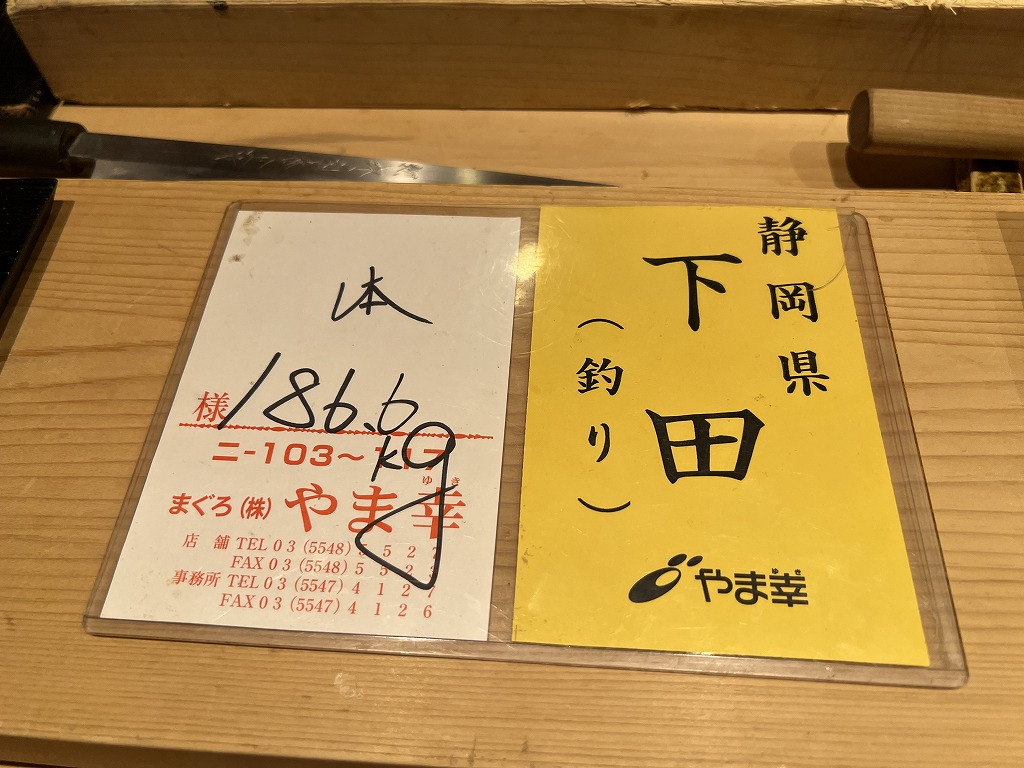 本
186.6
kg
様
ニ-103〜117
ゆき
まぐろ(株)やま幸
店舗 TEL03(5548)5523
FAX03(5548)552
事務所 TEL03(5547)4127
FAX03(5547)4126
静岡県
下田
(釣り)
ゆき
やま幸